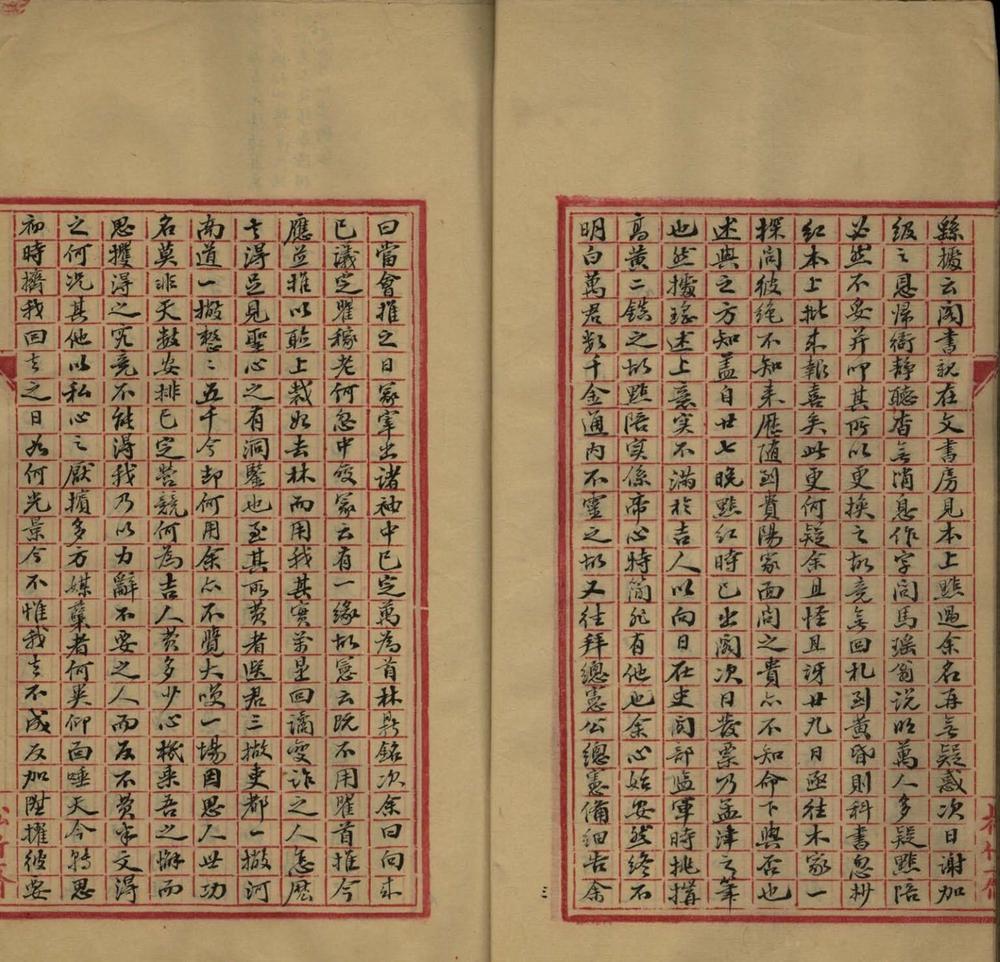 縣據云閣書說在文書房見本上點過余名再無疑惑次日謝加
級之恩歸衙靜聽杳無消息作字問馬瑶翁說昭萬人多疑點陪
必然不妥并叩其所以更換之故竟無回札到黃昏則科書忽抄
紅本上批來報喜矣此更何疑余且怪且訝廿九日亟往木家一
探問彼絕不知来歷隨到貴陽家面問之貴亦不知命下與否也
述與之方知蓋自廿七晚點紅時已出閣次日發票乃孟津之筆
也然據瑤述上意实不滿於吉人以向日在史閣部監軍時挑搆
高黃二鎮之故點陪实係帝心特簡非有他也余心始安然終不
明白萬君数千金通內不靈之故又往拜總憲公總憲備細告余
曰當會推之日冢宰出諸袖中已定萬為首林鼎銘次余曰向来
已議定瞿稼老何忽中变冢云有一緣故憲云既不用瞿首推今
應並推以聽上裁如去林而用我其實前星回謫变詐之人怎麼
去得足見聖心之有洞鑒也至其所费者送君三撒吏都一撒河
南道一撒整二五千今却何用余亦不覺大笑一場因思人世功
名莫非天数安排已定營競何為吉人费多少心機来吾之懈而
思攫得之究竟不能得我乃以力辭不要之人而反不费半文得
之何况其他以私心之厭擯多方媒孽者何異仰面唾天今翻思
初時擠我回去之日如何光景今不惟我去不成反加陞擢彼安
三